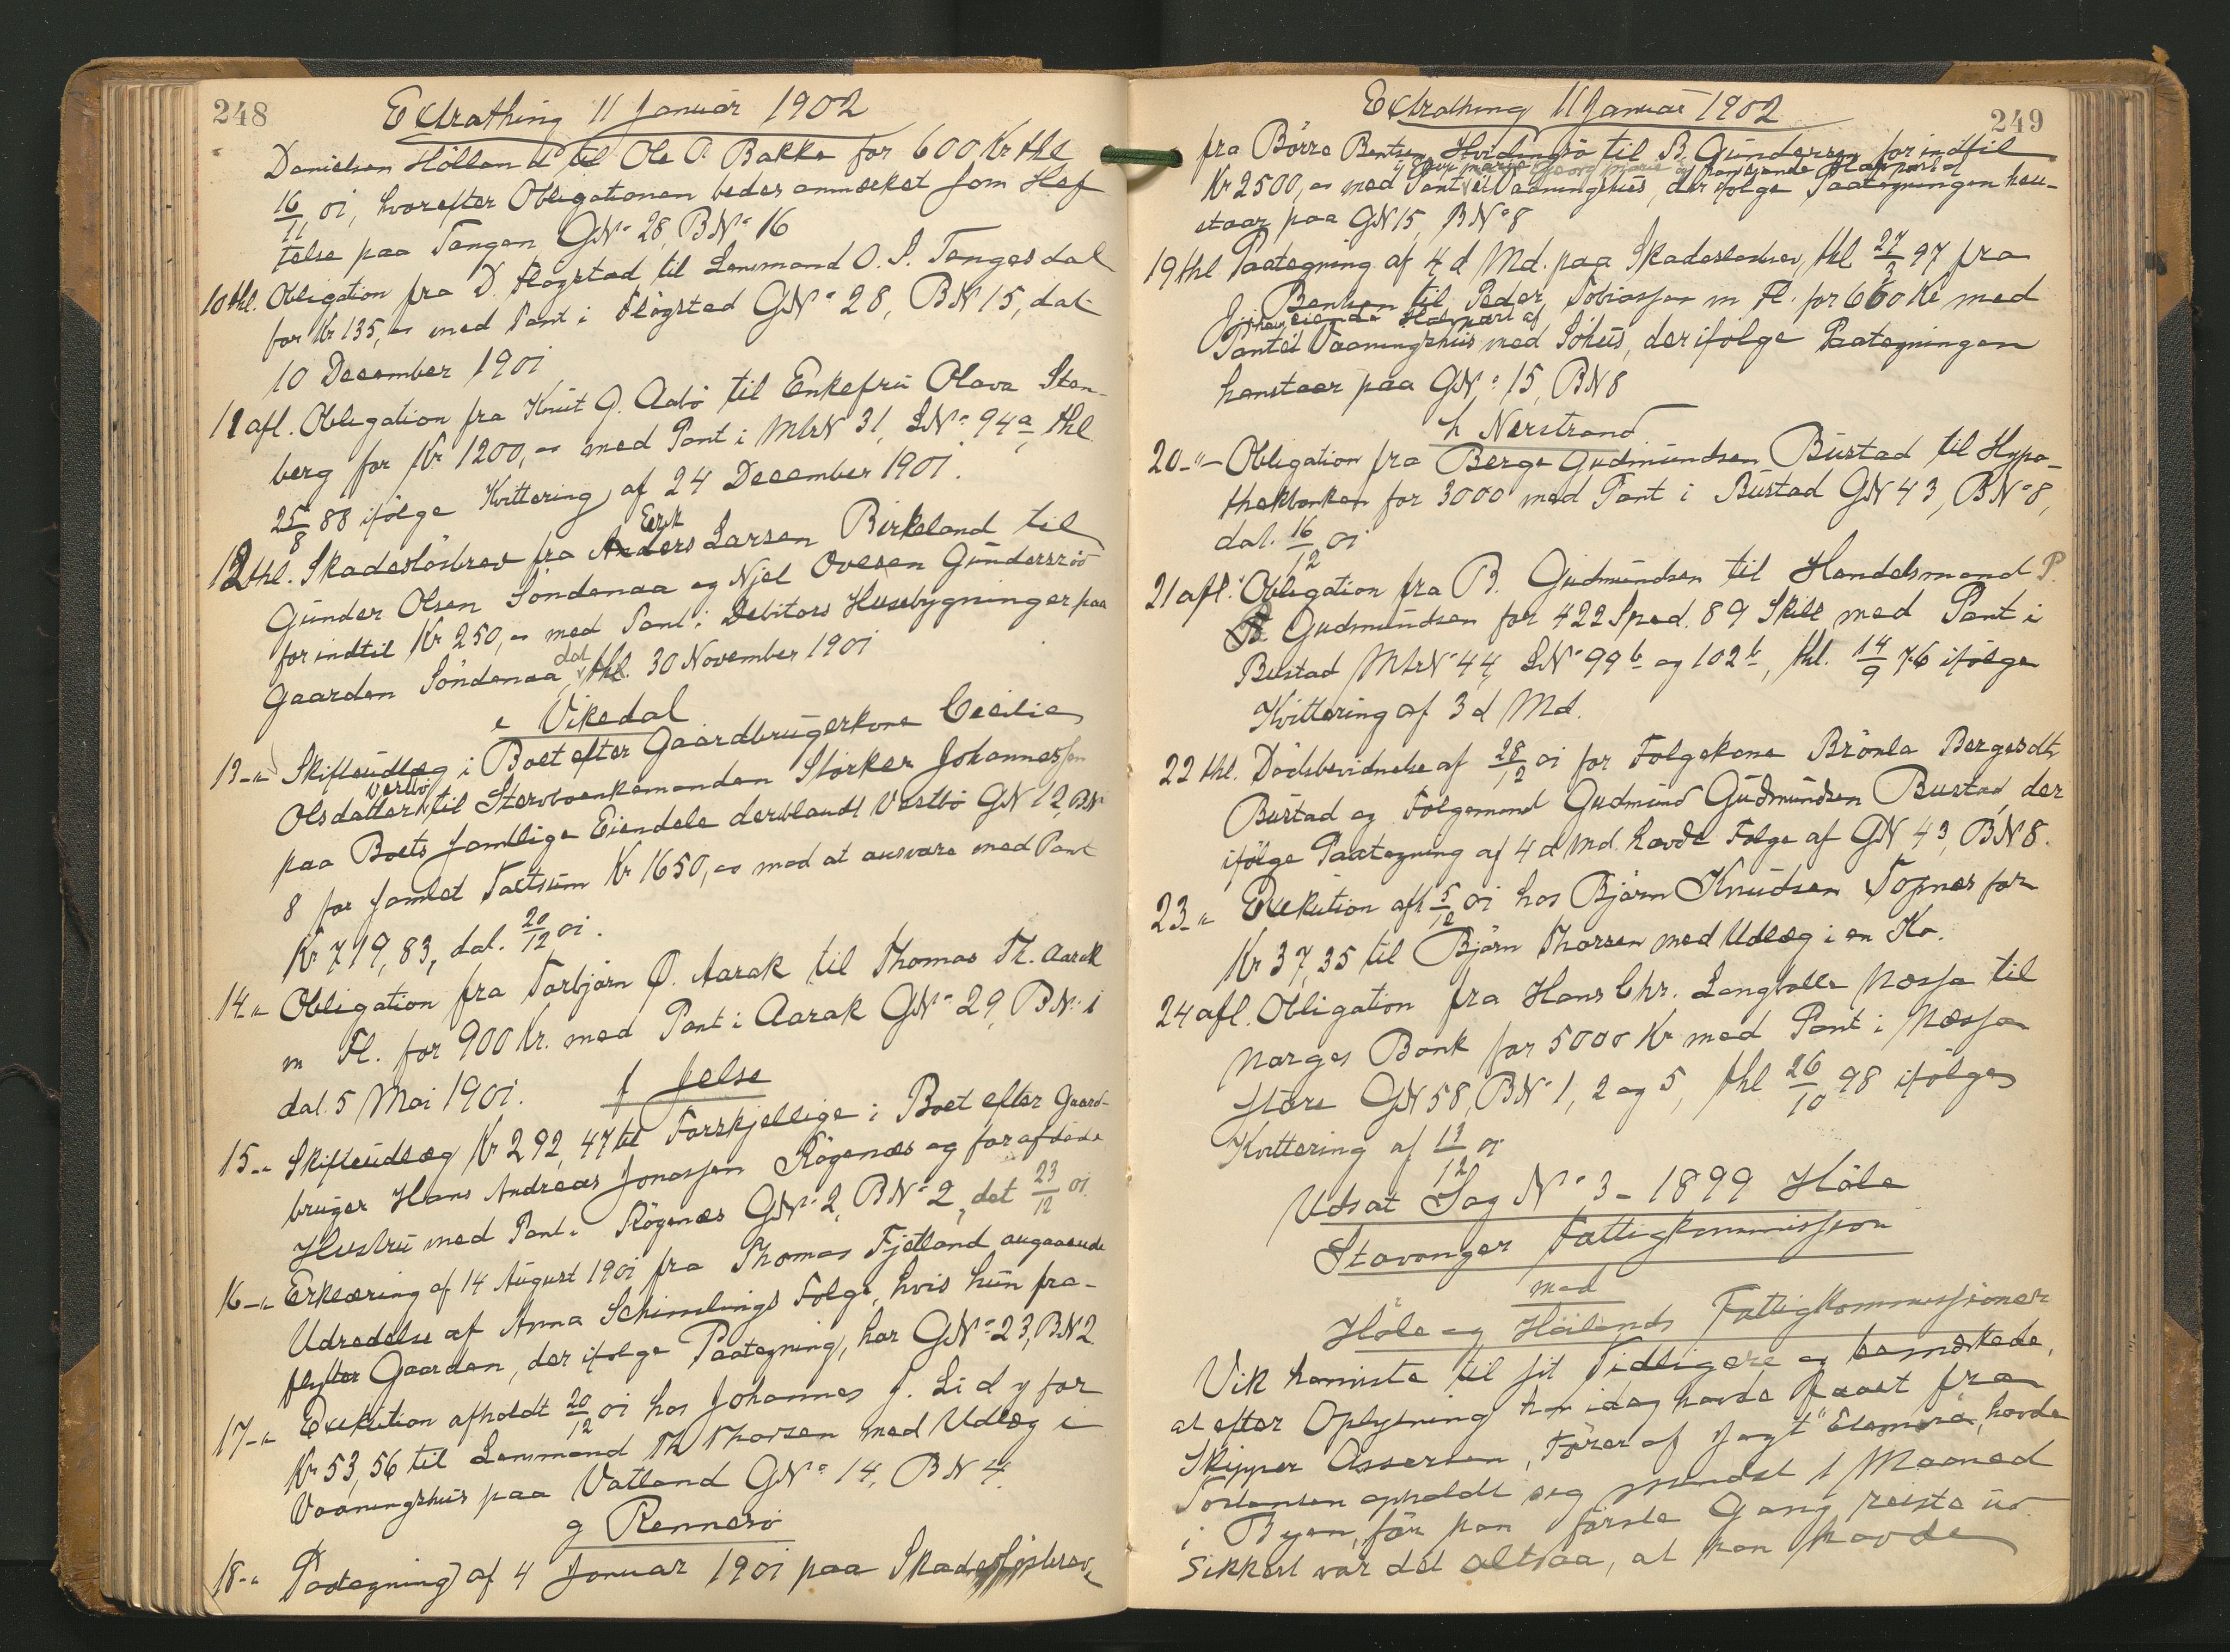 248
Extrathing 11 Januar 1902
Danielsen Hölland til Ole O. Bakke for 600 Kr thl
16/11 01, hvorefter Obligationen bedes anmærket som Hef
telse paa Tangen GNº 28, BNº 16
10 thl. Obligation fra D. Flögstad til Lensmand O. S. Tangesdal
for Kr 135,00 med Pant i Flögstad GNº 28, BN 15, dat
10 December 1901
11 afl. Obligation fra Knut G. Aabö til Enkefru Olava Sten-
berg for Kr 1200,00 med Pant i MtrN 31, LNº 94a, thl
25/8 88 ifölge Kvittering af 24 December 1901.
12 thl. Skadeslösbrev fra Anders Erik Larsen Birkeland til
Gunder Olsen Söndenaa og Njel Ovesen Gundersrö
for indtil Kr 250,00 med Pant i Debitors Husebygninger paa
Gaarden Söndenaa, dat thl. 30 November 1901
e Vikedal
13-"- Skifteudlæg i Boet efter Gaardbrugerkone Cecilie
Olsdatter Vestbö til Stervboenkemanden Störker Johannessen
paa Boets samtlige Eiendele deriblandt Vestbö GN 12, BN
8 for samlet Taxtsum Kr 1650,00 mod at ansvare med Pant
Kr 719,83, dat. 20/12 01.
14" Obligation fra Torbjörn Ö. Aarak til Thomas Th. Aarak
m Fl. for 900 Kr. med Pant i Aarak GNº 29, BNº 1
dat. 5 Mai 1901.
f Jelse
15-" Skifteudlæg Kr 292,47 til Forskjellige i Boet efter Gaard-
bruger Hans Andreas Jonassen Rögenæs og før afdöde
Hustru med Pant i Rögenæs GNº 2, BNº 2, dat 23/12 01.
16-" Erklæring af 14 August 1901 fra Thomas Fjetland angaaende
Udredelse af Anna Schimelings Folge, hvis hun fra-
flytter Gaarden, der ifolge Paategning, har GNº 23, BN 2
17-" Exekution afholdt 20/12 01 hos Johannes J. Lidy for
Kr 53,56 til Lensmand Th Thorsen med Udlæg i
Vaaningshus paa Vatland GNº 14, BN 4.
g Rennesö
18-" Paategning af 4 Januar 1901 paa Skadeslösbrev
249
Extrathing 11 Januar 1902
fra Börre Bentsen Hvidingsö til B. Gundersen for indtil
Kr 2500,00 med Pant i Vaaningshus, der ifolge Paategningen hen-
staar paa GN 15, BNº 8
19 thl Paategning af 4 d Md. paa Skadeslosbrev, thl 27/3 97 fra
J. Bentsen til Peder Tobiassen m Fl. for 660 Kr med
eiende Halvpart af
Pant i Vaaningshus med Söhus, der ifolge Paategningen
henstaar paa GNº 15, BN 8
h Nerstrand
20-"- Obligation fra Berge Gudmundsen Bustad til Hypo-
thekbanken for 3000 med Pant i Bustad GN 43, BNº 8,
dat. 16/12 01
21 afl. Obligation fra B. Gudmundsen til Handelsmand P.
Gudmundsen for 422 Spd. 89 Skill med Pant i
Bustad MtrNº 44, LNº 99b og 102b, thl. 14/9 76 ifölge
Kvittering af 3 d Md.
22 thl. Dödsbevidnelse af 28/12 01 for Folgekone Brönla Bergesdtr
Bustad og Folgemand Gudmund Gudmundsen Bustad, der
ifölge Paategning af 4 d Md. havde Folge af GN 43, BN 8.
23-" Exekution afh 5/12 01 hos Björn Knudsen Fognes for
Kr 37,35 til Björn Thorsen med Udlæg i en Ko.
24 afl. Obligation fra Hans Chr. Langballe Næssa til
Norges Bank for 5000 Kr med Pant i Næssa
store GN 58, BNº 1, 2 og 5, thl 26/10 98 ifölge
Kvittering af 13/12 01
Udsat Sag Nº 3-1899 Höle
Stavanger Fattigkommission
mod
Höle og Höilands Fattigkommissioner
Vik henviste til sit Tidligere og bemærkede,
at efter Oplysning han idag havde faaet fra
Skipper Assersen, Förer af Jagt "Elenora", havde
Torstensen opholdt sig mindst 1 Maaned
i Byen, för han förste Gang reiste ud.
Sikkert var det altsaa, at han havde